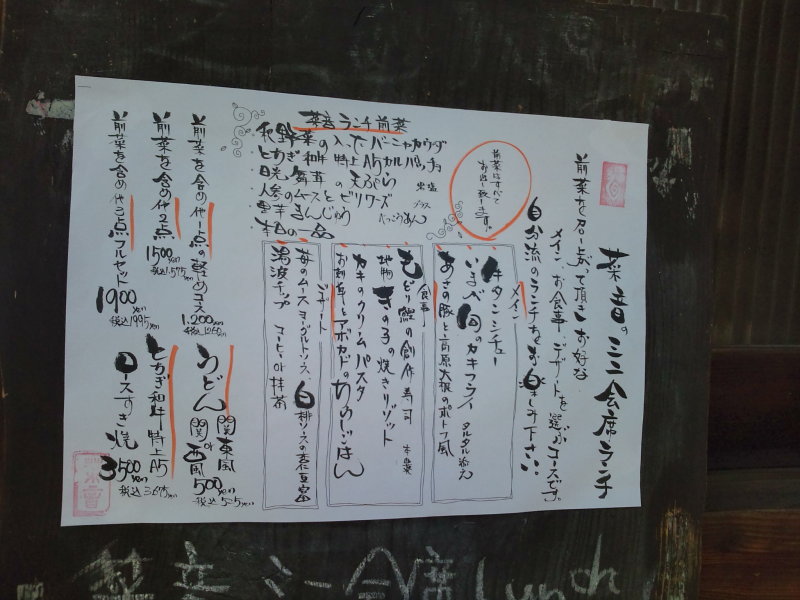 菜音のミニ会席ランチ
前菜を召し上って頂きお好な
メイン、お食事、デザートを選ぶコースです。
自分流のランチをお楽しみ下さい。
菜音ランチ前菜
秋野菜の入ったバーニャカウダ
とちぎ和牛特上A5カルパッチョ
日光舞茸の天ぷら
人参のムースとビリワーズ
里芋まんじゅう べっこうあん
本日の一品
前菜はすべて
お出し致します。
メイン
牛タンシチュー
いまが旬のカキフライ タルタル添え
あさの豚と高原大根のポトフ風
食事
もどり鰹の創作寿司
地物きの子の焼きリゾット
カキのクリームパスタ
お刺身とアボカドのちらしごはん
デザート
苺のムースヨーグルトソース
湯波チップ コーヒーor抹茶
前菜を含め他1点の軽めコース
1,200yen
税込1260yen
前菜を含め他2点
1500yen
税込1,575yen
前菜を含め他3点フルセット
1900yen
税込1995yen
うどん 関東風
or
関西風
500yen
税込525yen
とちぎ和牛特上A5
ロースすき焼
3500yen
税込3675yen
菜音ミニ会席Lunch